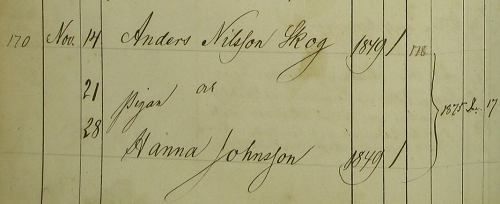 170 Nov. 14 Anders Nilsson Skog 1849 /
21 pigan
28 Hanna Johnsson 1849 /
1875 17